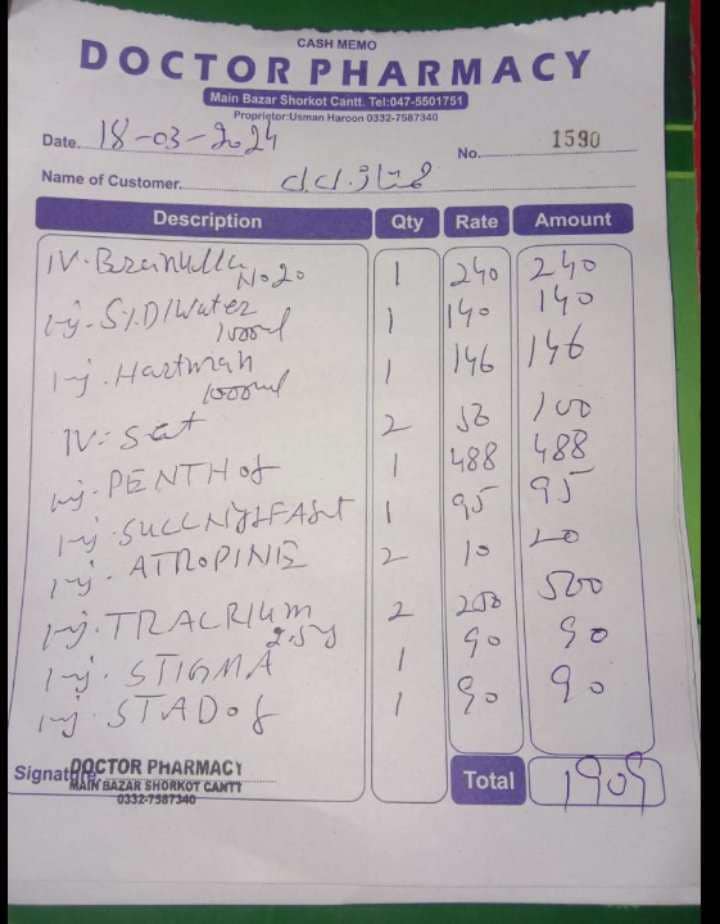 CASH MEMO
DOCTOR PHARMACY
Main Bazar Shorkot Cantt. Tel:047-5501751
Proprietor:Usman Haroon 0332-7587340
Date. 18-03-2024
No. 1590
Name of Customer. ممتاز
Description Qty Rate Amount
IV. Branulla No 20 1 240 240
inj. 5%D/Water 1000ml 1 140 140
inj. Hartman 1000ml 1 146 146
IV. Set 2 50 100
inj. PENTHOL 1 488 488
inj. SUCCNYLFAST 1 95 95
inj. ATROPINE 2 10 20
inj. TRACRIUM 2.5g 2 250 500
inj. STIGMA 1 90 90
inj. STADOL 1 90 90
Signature
DOCTOR PHARMACY
MAIN BAZAR SHORKOT CANTT
0332-7587340
Total 1909